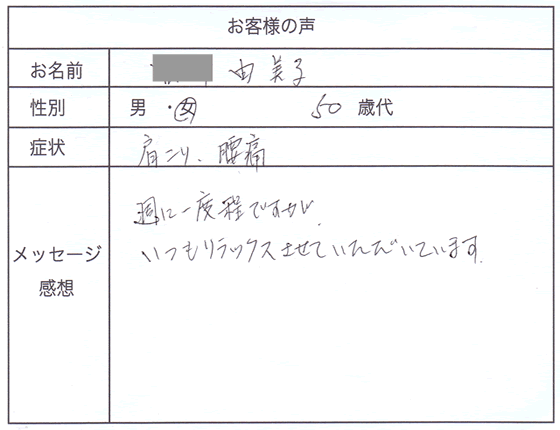 お客様の声
お名前 由美子
性別 男・女 50 歳代
症状 肩こり、腰痛
メッセージ
感想
週に一度程ですが、
いつもリラックスさせていただいています。